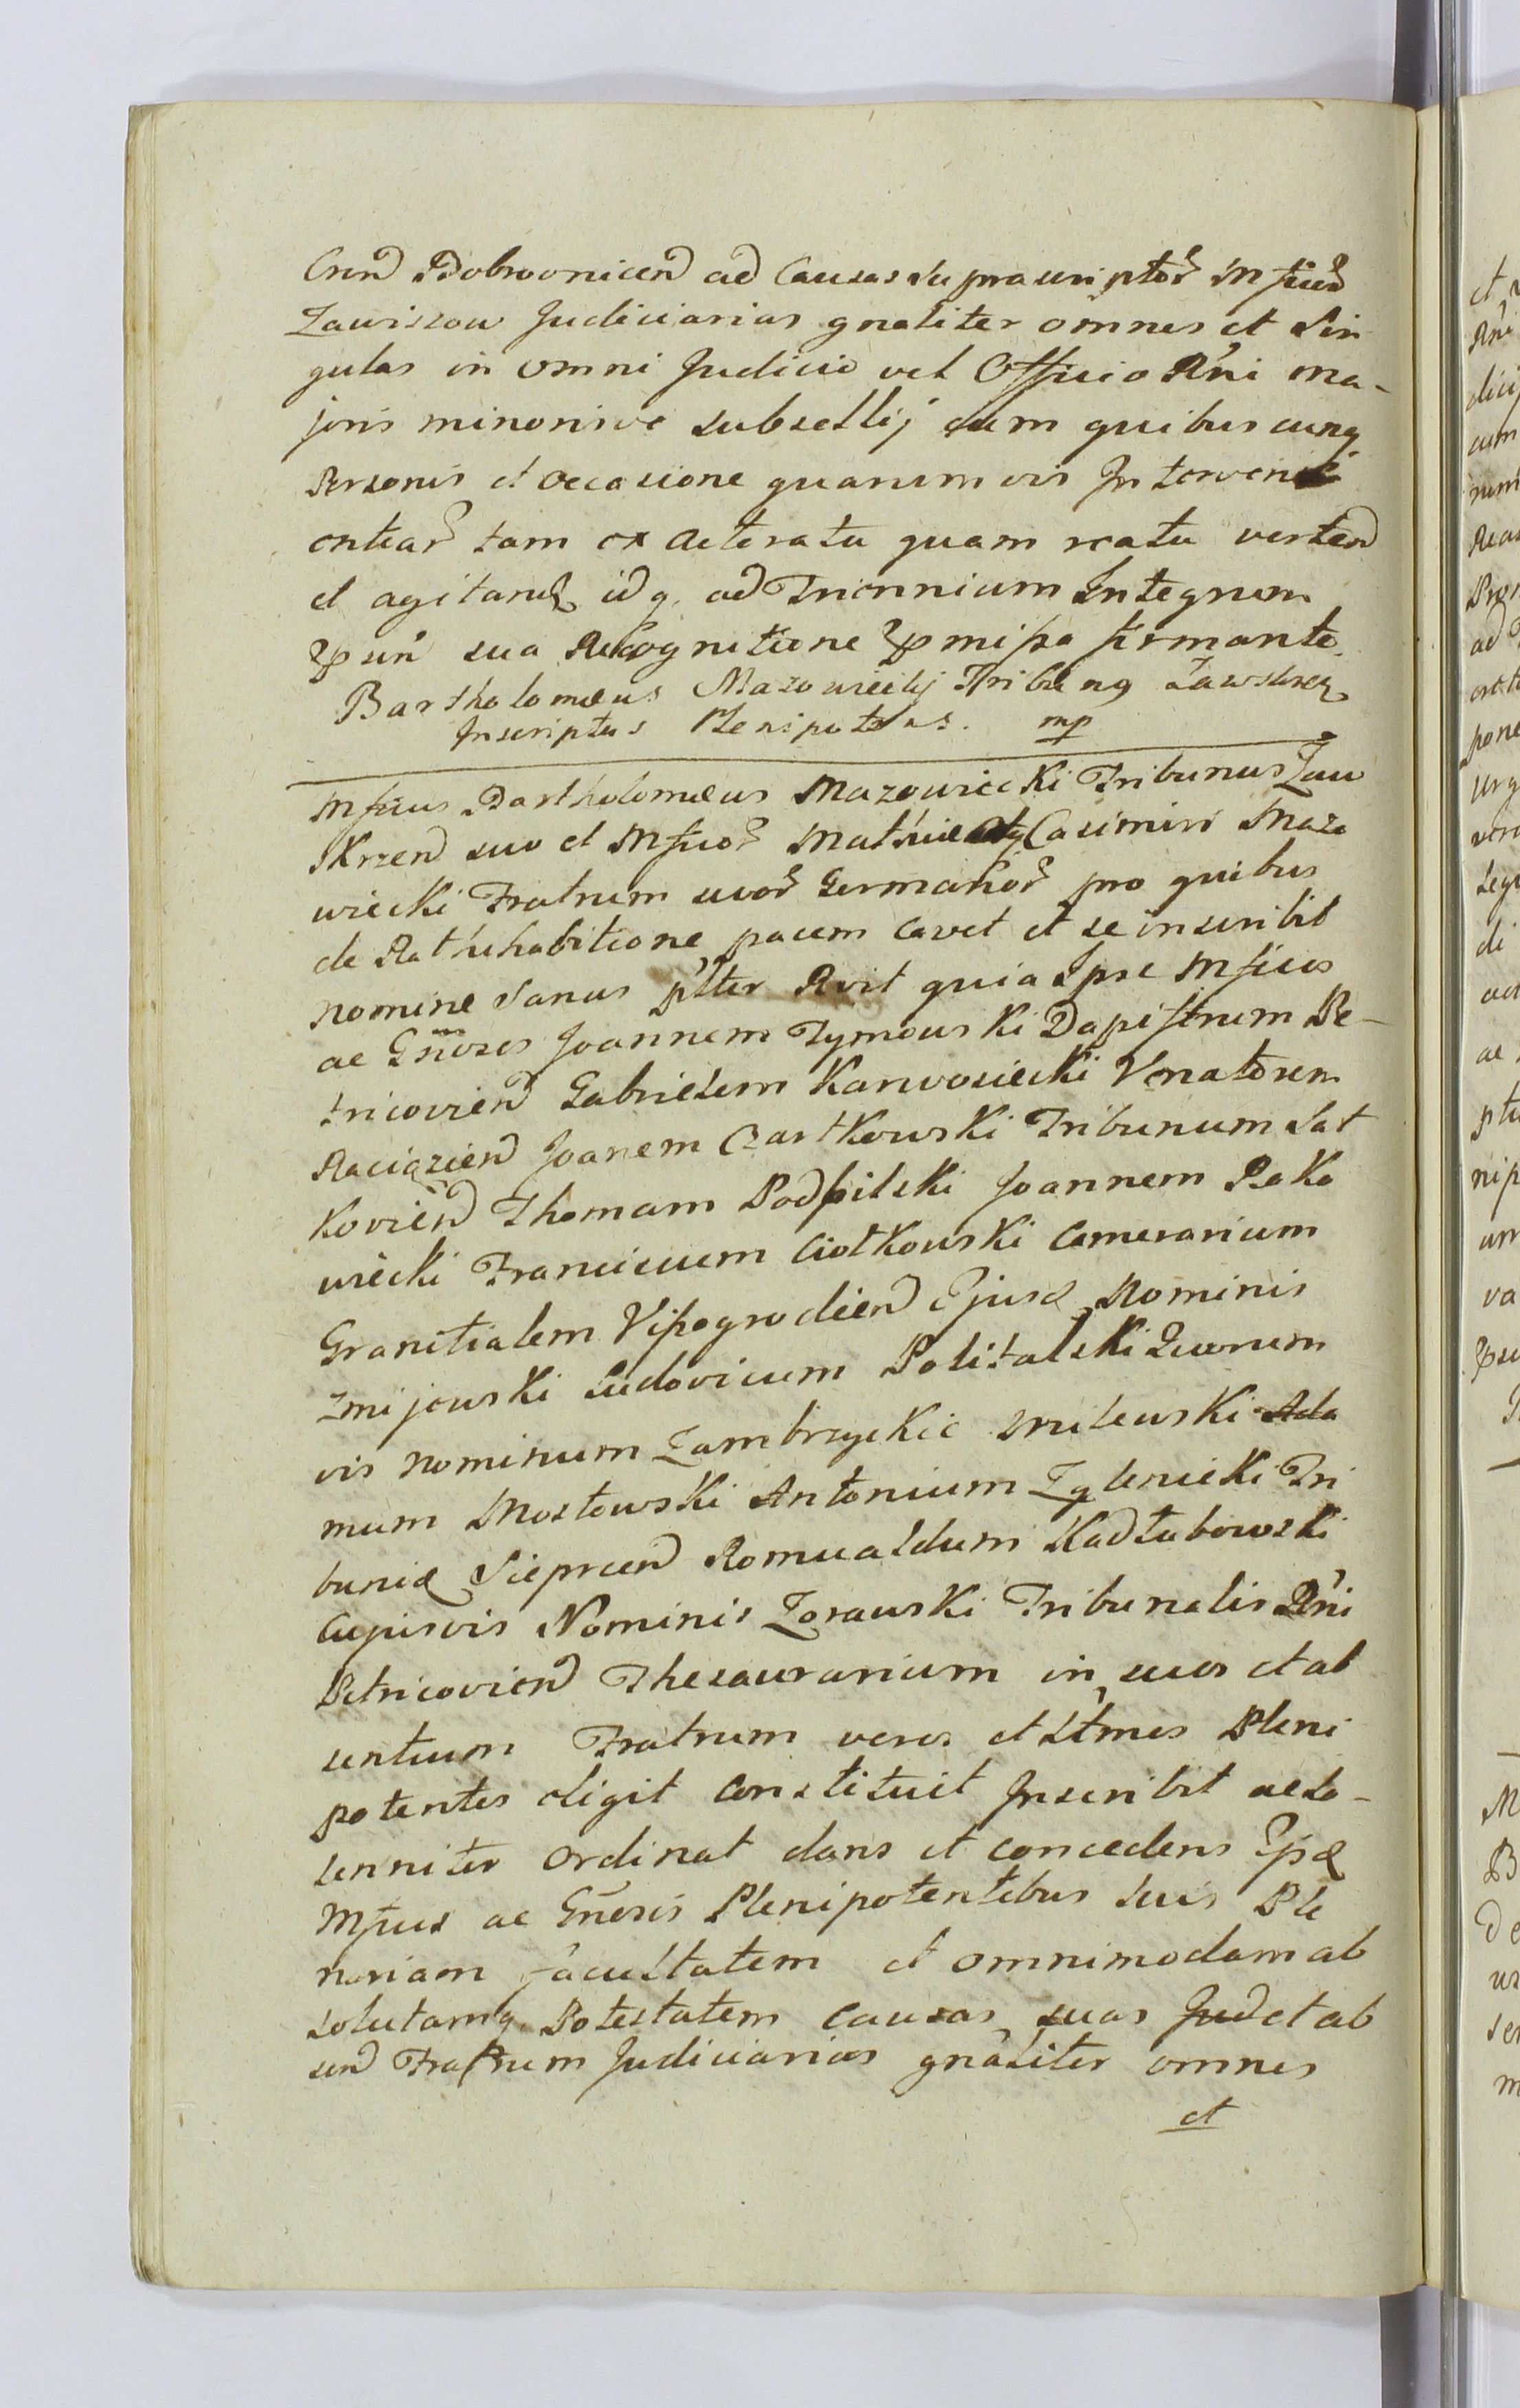 Cren Bobrovnicen ad Causas supra scriptor Mficor
Zawiszow Judiciarias gnaliter omnes et Sin
gulas in omni Judicio vel Officio Rni ma-
joris minorisve subsellij cum quibuscunq
Personis et occasione quarumvis Interveni
entiar tam ex Actoratu quam reatu verten
et agitand idq ad Triennium Integrum
Pnsn sua Recognitione Pmissa firmante.
Bartholomæus Mazowiecky Tribung Zawskrz
Inscriptus Plenipotens. mp
Mficus Bartholomæus Mazowiecki Tribunus Zaw
Skrzen suo et Mficor Mathiæ Casimiri Mazo
wiecki Fratrum suor Germanor pro quibus
de Rathihabitione pacem cavet et se inscribit
nomine Sanus plter Rvit quia Ipse Mficos
ac Gnosos Joannem Tymowski Dapiferum Pe-
tricovien Gabrielem Karwosiecki Venatorem
Raciązien Joanem Czartkowski Tribunum Sat
kovien Thomam Podfilski Joannem Rako
wiecki Franciscum Ciołkowski Camerarium
Granitialem Vissogrodien Ejusd Nominis
Zmijewski Ludovicum Politalski Quorum
vis nominum Zambrzyckie Milewski Ada
mum Mostowski Antonium Zglenicki Tri
bunid Sieprcen Romualdum Kadłubowski
Cujusvis Nominis Zorawski Tribunalis Rni
Petricovien Thesaurarium in suos et ab
sentium Fratrum veros et ltmos Pleni
potentes eligit Constituit Inscribit ac so-
lenniter ordinat dans et concedens Ipsd
Mficis ac Gnosis Plenipotentibus suis Ple
nariam facultatem et omnimodam ab
solutamq Potestatem causas suas Jud et ab
sen Fratrum Judiciarias gnaliter omnes
et